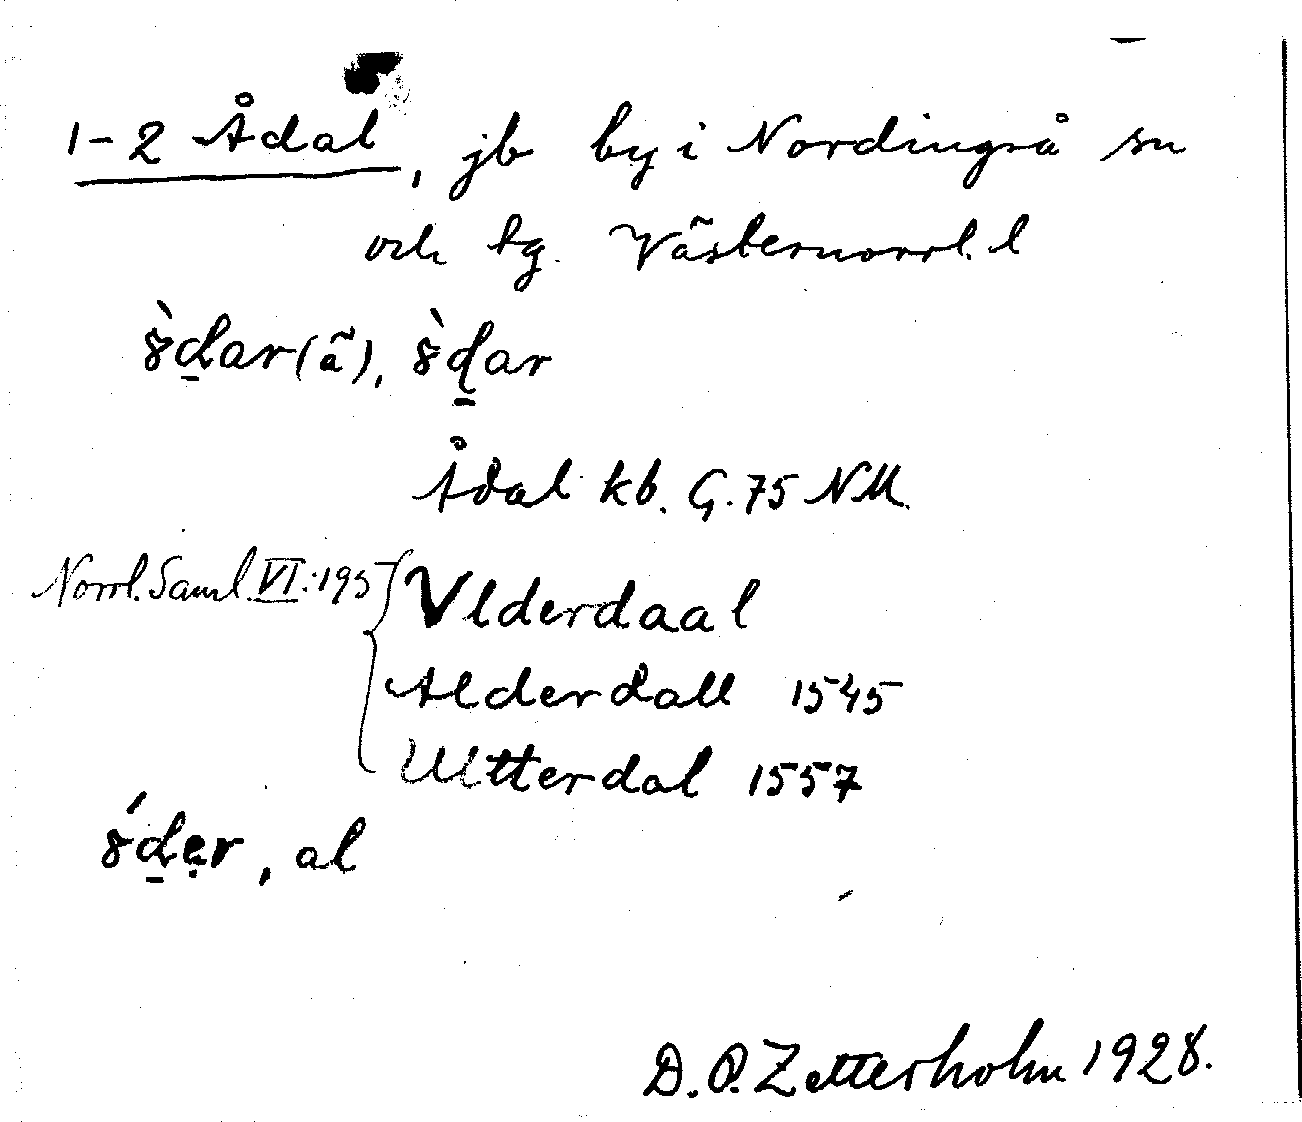 1-2 Ådal, jb by i Nordingrå sn
och tg. Västernorrl. l
ꞩ̀d̲ar(ã), ꞩ̀d̲ar
Ådal kb. G. 75 NM
Norrl. Saml. VI: 195 { Vlderdaal
Alderdall 1545
Ultterdal 1557
ꞩ́d̲ẹr, al
D. O. Zetterholm 1928.